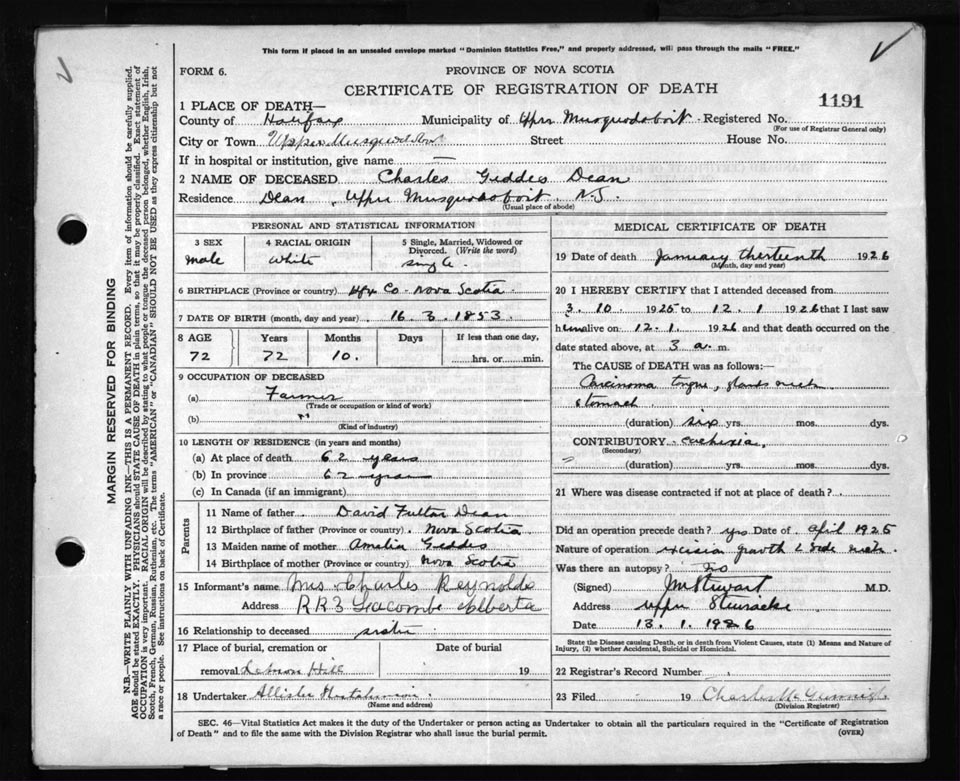 This form if placed in an unsealed envelope marked "Dominion Statistics Free," and properly addressed, will pass through the mails "FREE."
FORM 6.
PROVINCE OF NOVA SCOTIA
CERTIFICATE OF REGISTRATION OF DEATH
1191
1 PLACE OF DEATH—
County of Halifax Municipality of Upper Musquodoboit Registered No.
(For use of Registrar General only)
City or Town Upper Musquodoboit Street House No.
If in hospital or institution, give name —
2 NAME OF DECEASED Charles Geddes Dean
Residence Dean, Upper Musquodoboit, N.S.
(Usual place of abode)
PERSONAL AND STATISTICAL INFORMATION
3 SEX 4 RACIAL ORIGIN 5 Single, Married, Widowed or Divorced. (Write the word)
male white single.
6 BIRTHPLACE (Province or country) Hfx Co - Nova Scotia
7 DATE OF BIRTH (month, day and year) 16. 3. 1853.
8 AGE Years Months Days If less than one day,
72 72 10. hrs. or min.
9 OCCUPATION OF DECEASED
(a) Farmer
(Trade or occupation or kind of work)
(b)
(Kind of industry)
10 LENGTH OF RESIDENCE (in years and months)
(a) At place of death 62 years
(b) In province 62 years
(c) In Canada (if an immigrant)
Parents
11 Name of father David Fulton Dean
12 Birthplace of father (Province or country) Nova Scotia
13 Maiden name of mother Amelia Geddes
14 Birthplace of mother (Province or country) Nova Scotia
15 Informant's name Mrs Charles Reynolds
Address RR3 Lacombe Alberta
16 Relationship to deceased sister
17 Place of burial, cremation or Date of burial
removal Lebnon Hill 19
18 Undertaker Allister
(Name and address)
MEDICAL CERTIFICATE OF DEATH
19 Date of death January thirteenth 1926
(Month, day and year)
20 I HEREBY CERTIFY that I attended deceased from
3. 10. 1925 to 12. 1 1926 that I last saw
him alive on 12. 1. 1926 and that death occurred on the
date stated above, at 3 a. m.
The CAUSE of DEATH was as follows:—
Carcinoma tongue, glands neck
stomach
(duration) six yrs. mos. dys.
CONTRIBUTORY cachexia,
(Secondary)
(duration) yrs. mos. dys.
21 Where was disease contracted if not at place of death?
Did an operation precede death? yes Date of April 1925
Nature of operation excision growth L side neck.
Was there an autopsy? no
(Signed) J M Stewart M.D.
Address Upper Stewiacke
Date 13. 1. 1926
State the Disease causing Death, or in death from Violent Causes, state (1) Means and Nature of
Injury, (2) whether Accidental, Suicidal or Homicidal.
22 Registrar's Record Number
23 Filed 19 Charles
(Division Registrar)
SEC. 46—Vital Statistics Act makes it the duty of the Undertaker or person acting as Undertaker to obtain all the particulars required in the "Certificate of Registration
of Death" and to file the same with the Division Registrar who shall issue the burial permit.
(OVER)
MARGIN RESERVED FOR BINDING
N.B.—WRITE PLAINLY WITH UNFADING INK—THIS IS A PERMANENT RECORD. Every item of information should be carefully supplied.
AGE should be stated EXACTLY. PHYSICIANS should STATE CAUSE OF DEATH in plain terms, so that it may be properly classified. Exact statement of
OCCUPATION is very important. RACIAL ORIGIN will be described by stating to what people or tongue the deceased person belonged, whether English, Irish,
Scotch, French, German, Russian, Ruthenian, etc. The terms "AMERICAN" or "CANADIAN" SHOULD NOT BE USED as they express citizenship but not
a race or people. See instructions on back of Certificate.